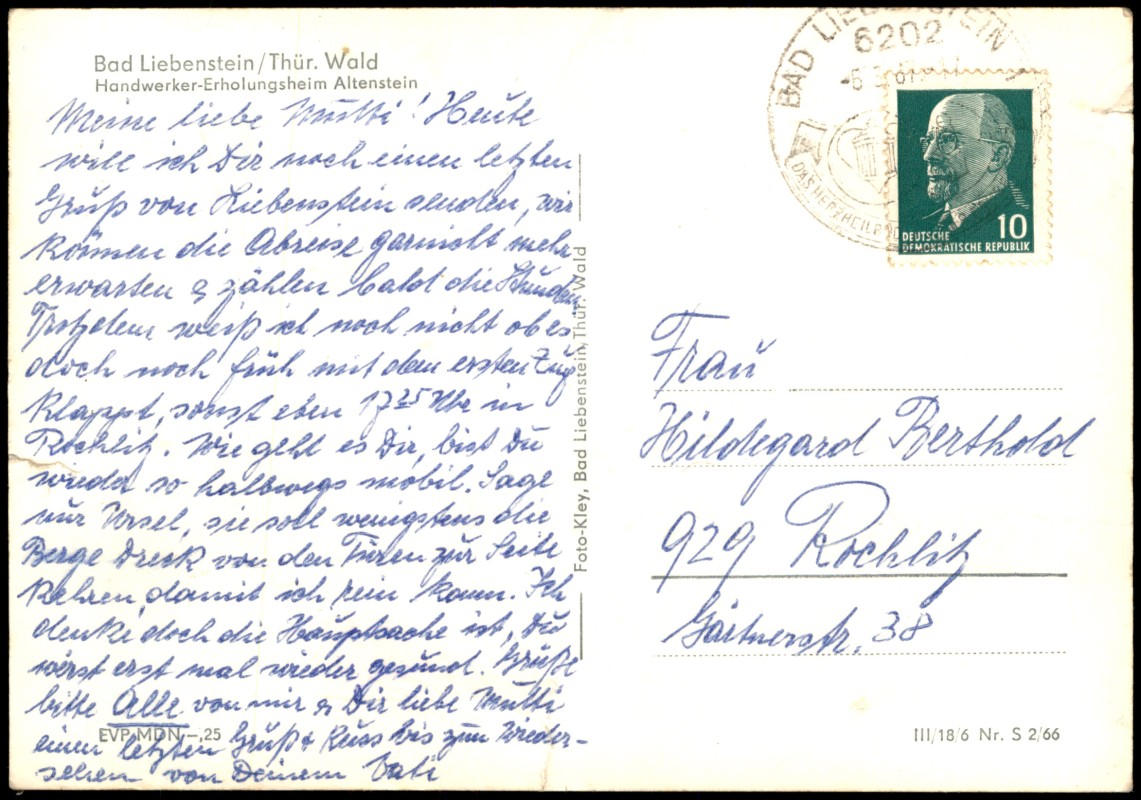 Bad Liebenstein/Thür. Wald
Handwerker-Erholungsheim Altenstein
Meine liebe Mutti! Heute
will ich Dir noch einen letzten
Gruß von Liebenstein senden, wir
können die Abreise garnicht mehr
erwarten & zählen bald die Stunden
Trotzdem weiß ich noch nicht ob es
doch noch früh mit dem ersten Zug
klappt, sonst eben 17 25 Uhr in
Rochlitz. Wie geht es Dir, bist Du
wieder so halbwegs mobil. Sage
nur Ursel, sie soll wenigstens die
Berge Dreck von den Türen zur Seite
kehren, damit ich rein kann. Ich
denke doch die Hauptsache ist, Du
wirst erst mal wieder gesund. Grüße
bitte Alle von mir & Dir liebe Mutti
einen letzten Gruß & Kuss bis zum Wieder-
sehen von Deinem Vati
EVP MDN -,25
Foto-Kley, Bad Liebenstein, Thür. Wald
BAD LIEBENSTEIN
6202
DAS HERZHEILB
10
DEUTSCHE
DEMOKRATISCHE REPUBLIK
Frau
Hildegard Berthold
929 Rochlitz
Gärtnerstr. 38
III/18/6 Nr. S 2/66